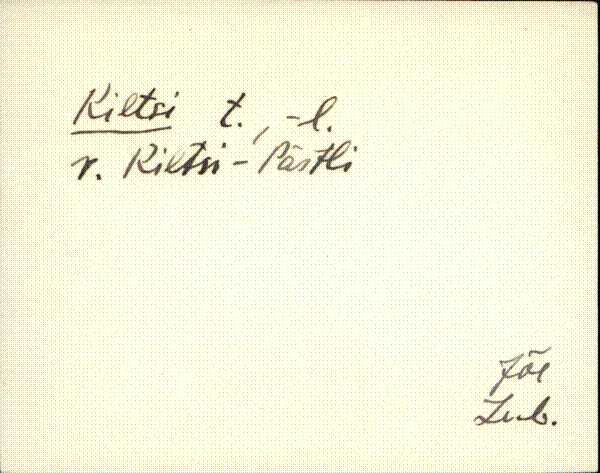 Kiltsi t., -l.
r. Kiltsi-Pästli
Jõe
Lub.